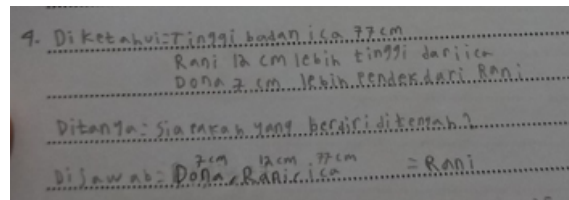 4. Diketahui=Tinggi badan ica 77 cm
Rani 12 cm lebih tinggi dari ica
Dona 7 cm lebih Pendek dari Rani
Ditanya= Siapakah yang berdiri ditengah?
7cm 12cm 77cm
Dijawab= Dona, Rani, ica = Rani